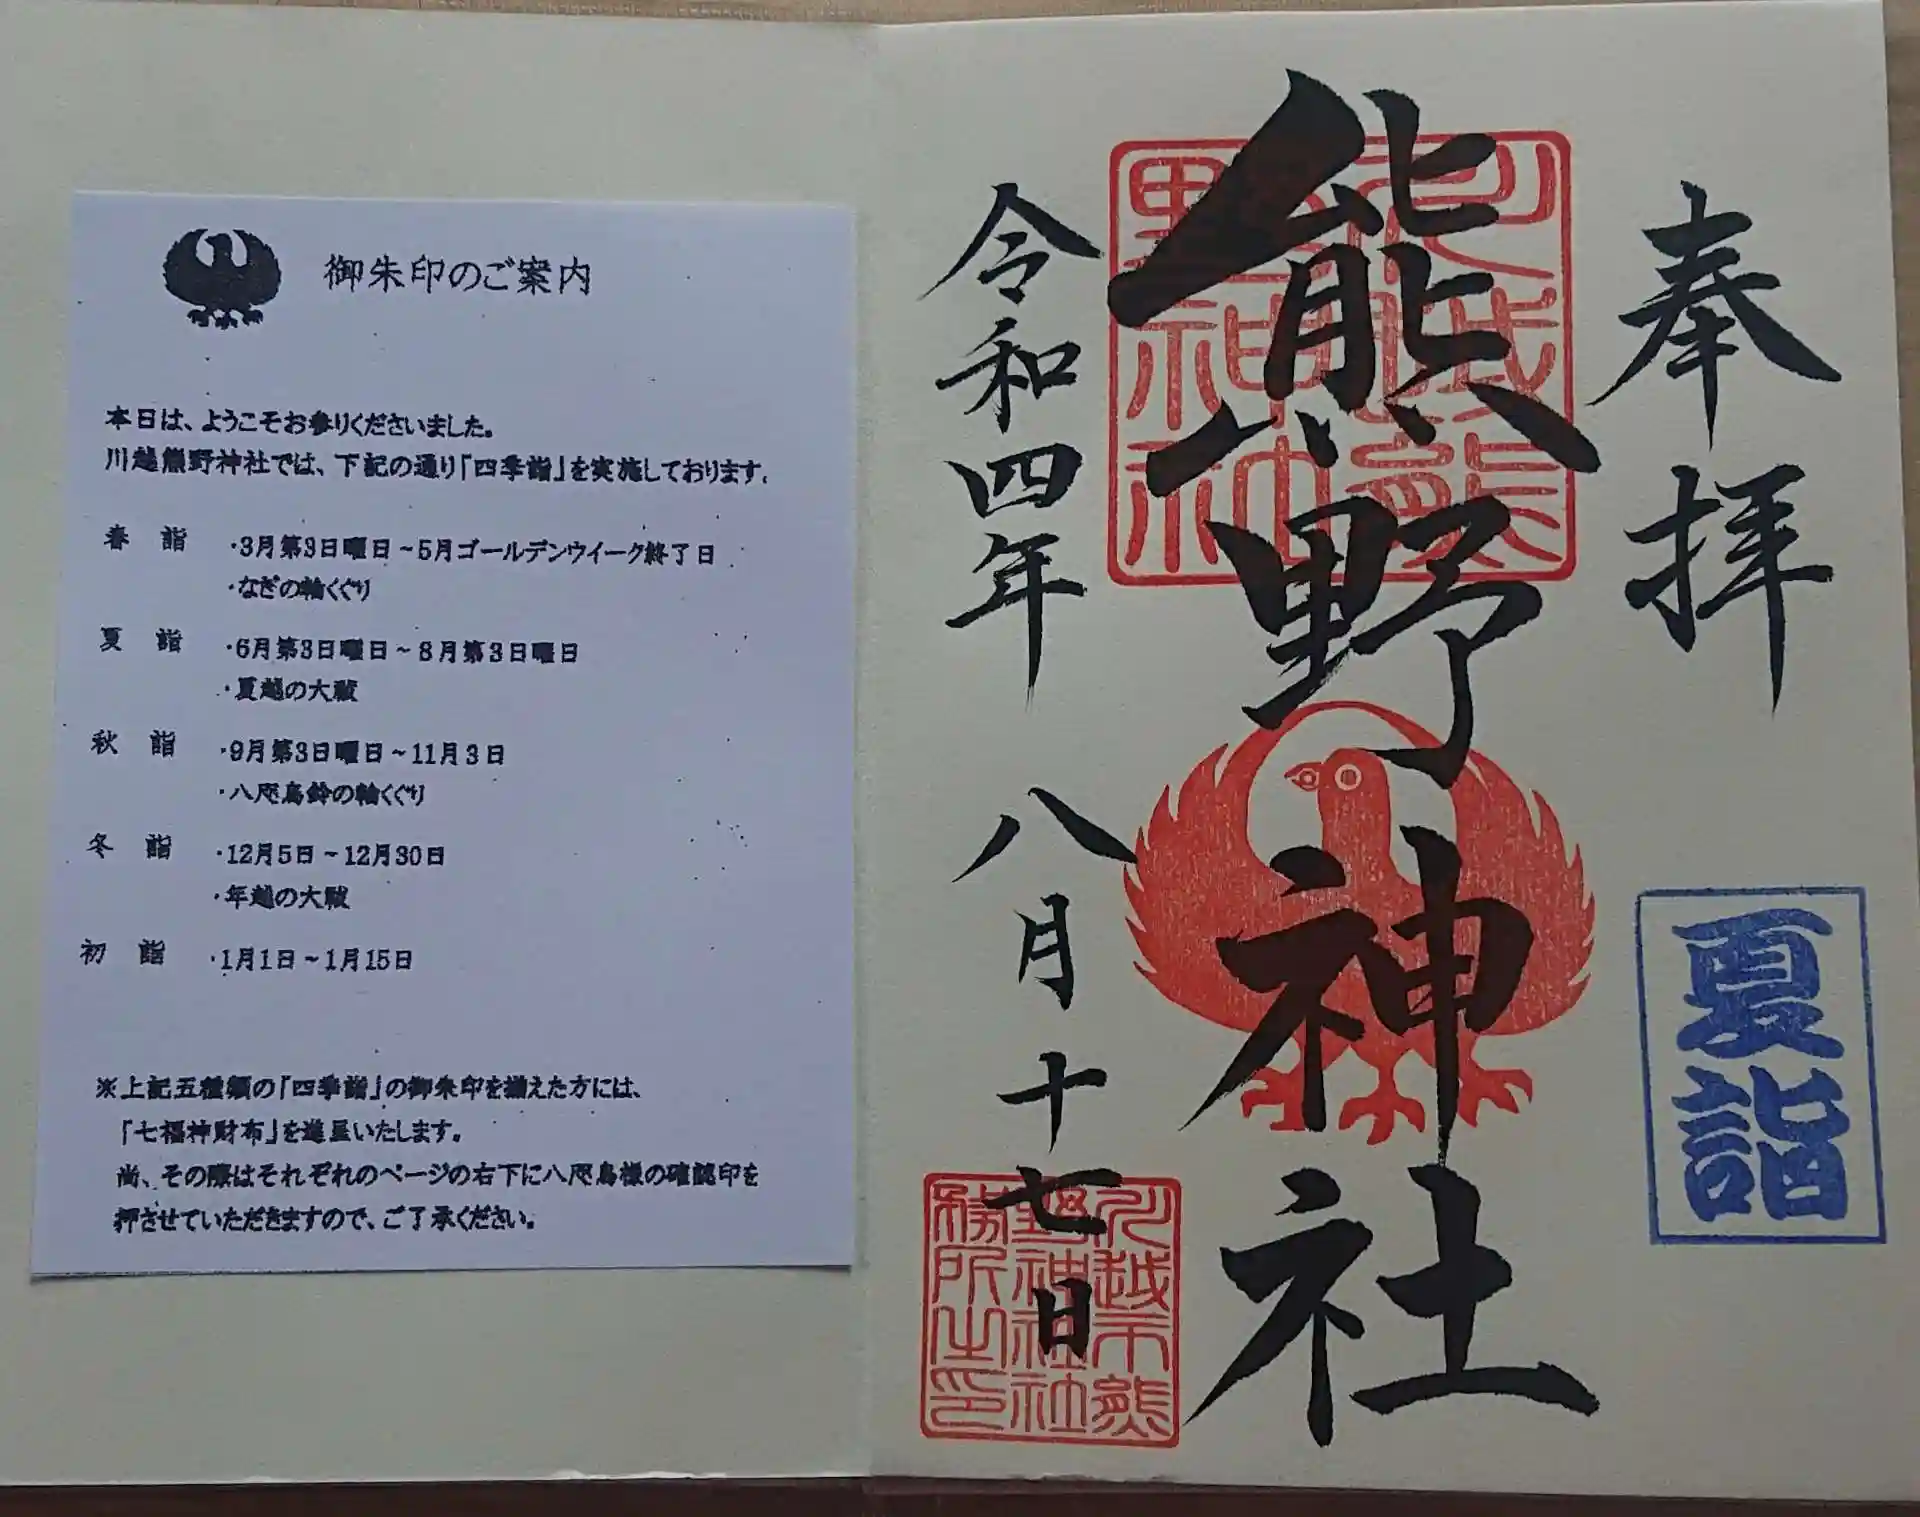 御朱印のご案内
本日は、ようこそお参りくださいました。
川越熊野神社では、下記の通り「四季詣」を実施しております。
春　詣　・3月第3日曜日～5月ゴールデンウイーク終了日
・なぎの輪くぐり
夏　詣　・6月第3日曜日～8月第3日曜日
・夏越の大祓
秋　詣　・9月第3日曜日～11月3日
・八咫烏鈴の輪くぐり
冬　詣　・12月5日～12月30日
・年越の大祓
初　詣　・1月1日～1月15日
※上記五種類の「四季詣」の御朱印を揃えた方には、
「七福神財布」を進呈いたします。
尚、その際はそれぞれのページの右下に八咫烏様の確認印を
押させていただきますので、ご了承ください。
奉拝
夏詣
熊野神社
川越熊野神社
令和四年 八月十七日
川越市熊野神社社務所之印